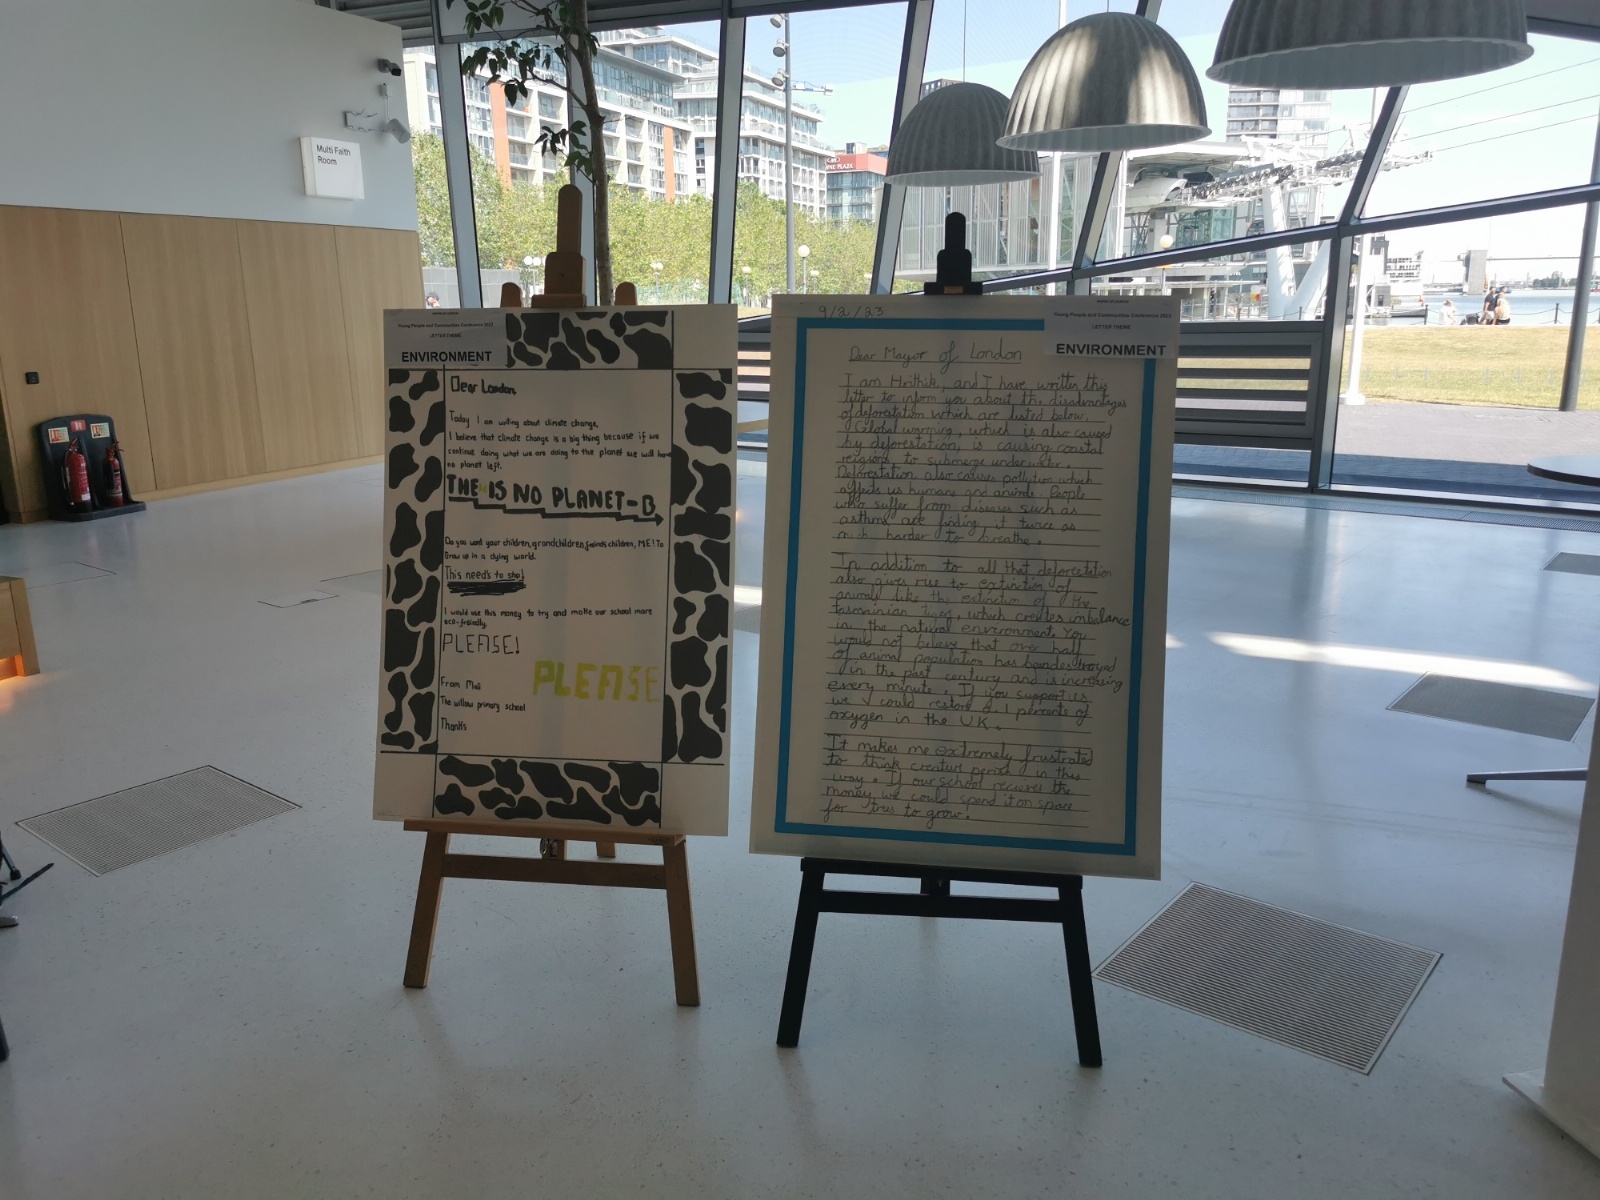 Multi Faith
Room
NE PLAZA
Young People and Communities Conference 2023
LETTER THEME
ENVIRONMENT
Dear London,
Today I am writing about climate change,
I believe that climate change is a big thing because if we
continue doing what we are doing to the planet we will have
no planet left.
THE IS NO PLANET-B
Do you want your children, grandchildren, freinds children, ME! To
Grow up in a dying world.
This need's to stop!
I would use this money to try and make our school more
eco-friendly.
PLEASE!
PLEASE
From
The willow primary school
Thanks
9/2/23
Young People and Communities Conference 2023
LETTER THEME
ENVIRONMENT
Dear Mayor of London
I am Hrithik, and I have written this
letter to inform you about the disadvantages
of deforestation which are listed below.
Global warming, which is also caused
by deforestation, is causing coastal
regions to submerge underwater.
Deforestation also causes pollution which
affects us humans and animals. People
who suffer from diseases such as
asthma are finding it twice as
much harder to breathe.
In addition to all that deforestation
also gives rise to extinction of
animals like the extinction of the
tasmainian tiger, which creates inbalance
in the natural environment. You
would not believe that over half
of animal population has been destroyed
in the past century and is increasing
every minute. If you support us
we could restore 0.1 percents of
oxygen in the UK.
It makes me extremely frustrated
to think creative person in this
way. If our school recieves the
money we could spend it on space
for trees to grow.